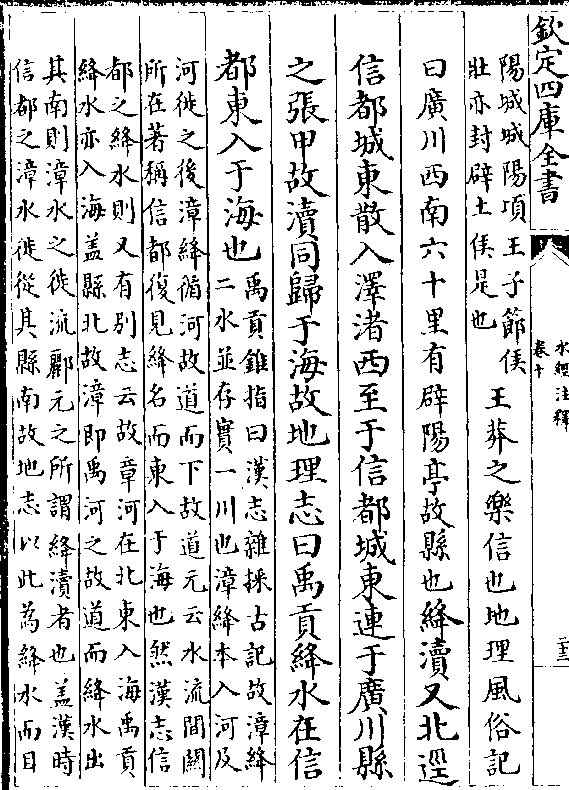 欽定四庫全書
水經注釋
卷十
陽城城陽項王子節侯
壯亦封辟土侯是也
王莽之樂信也地理風俗記
曰廣川西南六十里有辟陽亭故縣也絳瀆又北逕
信都城東散入澤渚西至于信都城東連于廣川縣
之張甲故瀆同歸于海故地理志曰禹貢絳水在信
都東入于海也
禹貢錐指曰漢志雜採古記故漳絳
二水並存實一川也漳絳本入河及
河徙之後漳絳循河故道而下故道元云水流間關
所在著稱信都復見絳名而東入于海也然漢志信
都之絳水則又有別志云故章河在北東入海禹貢
絳水亦入海盖縣北故漳即禹河之故道而絳水出
其南則漳水之徙流酈元之所謂絳瀆者也盖漢時
信都之漳水徙從其縣南故地志以此為絳水而目